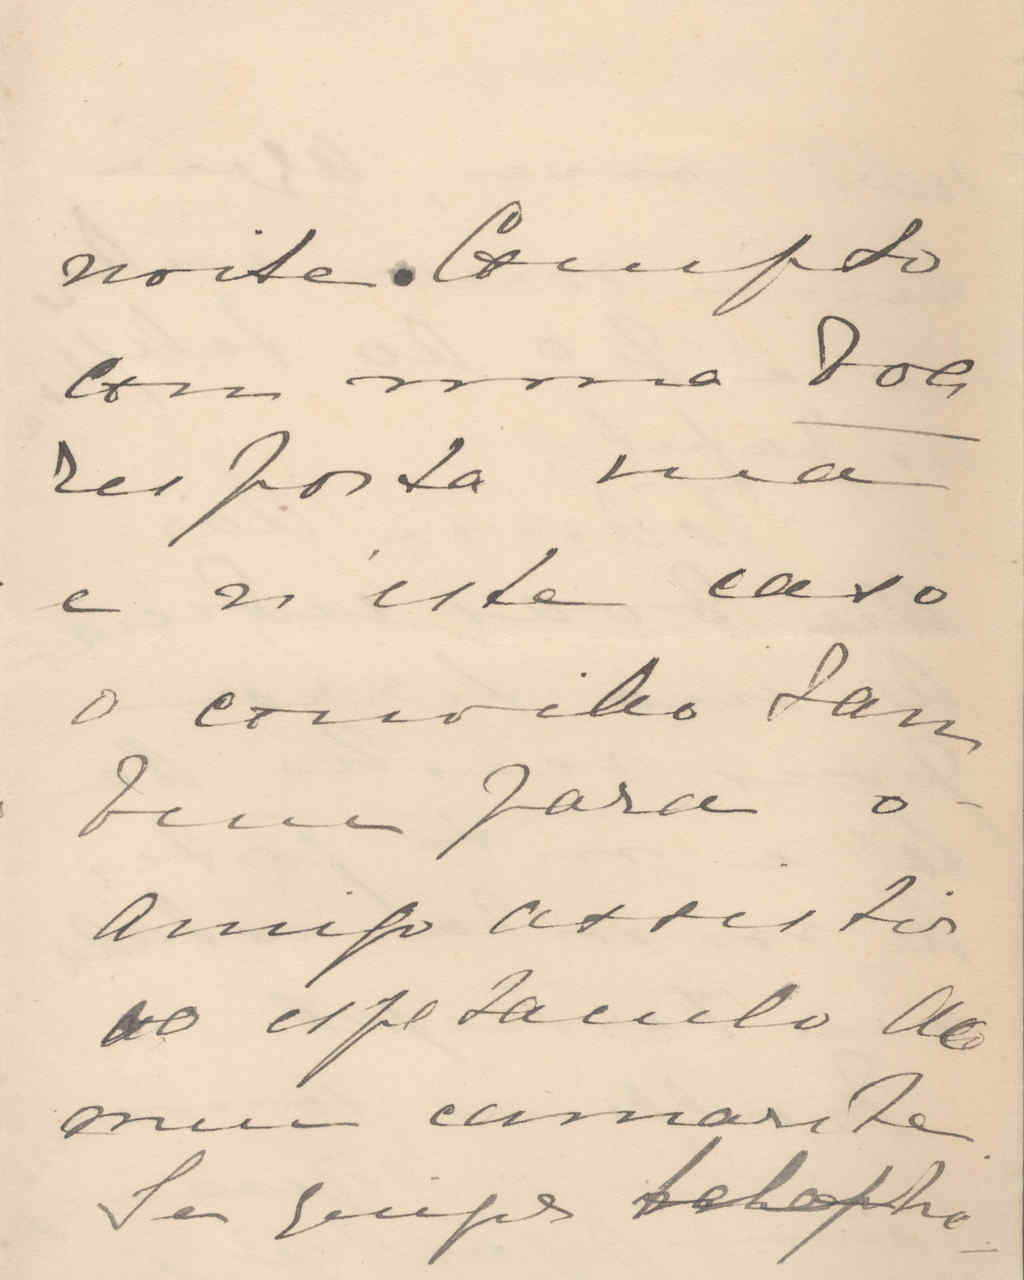 noite. Compto
com uma boa
resposta sua
e n'este caso
o convido tam
bem para o
amigo assistir
ao espetaculo do
meu camarote
Se quizer telepho-